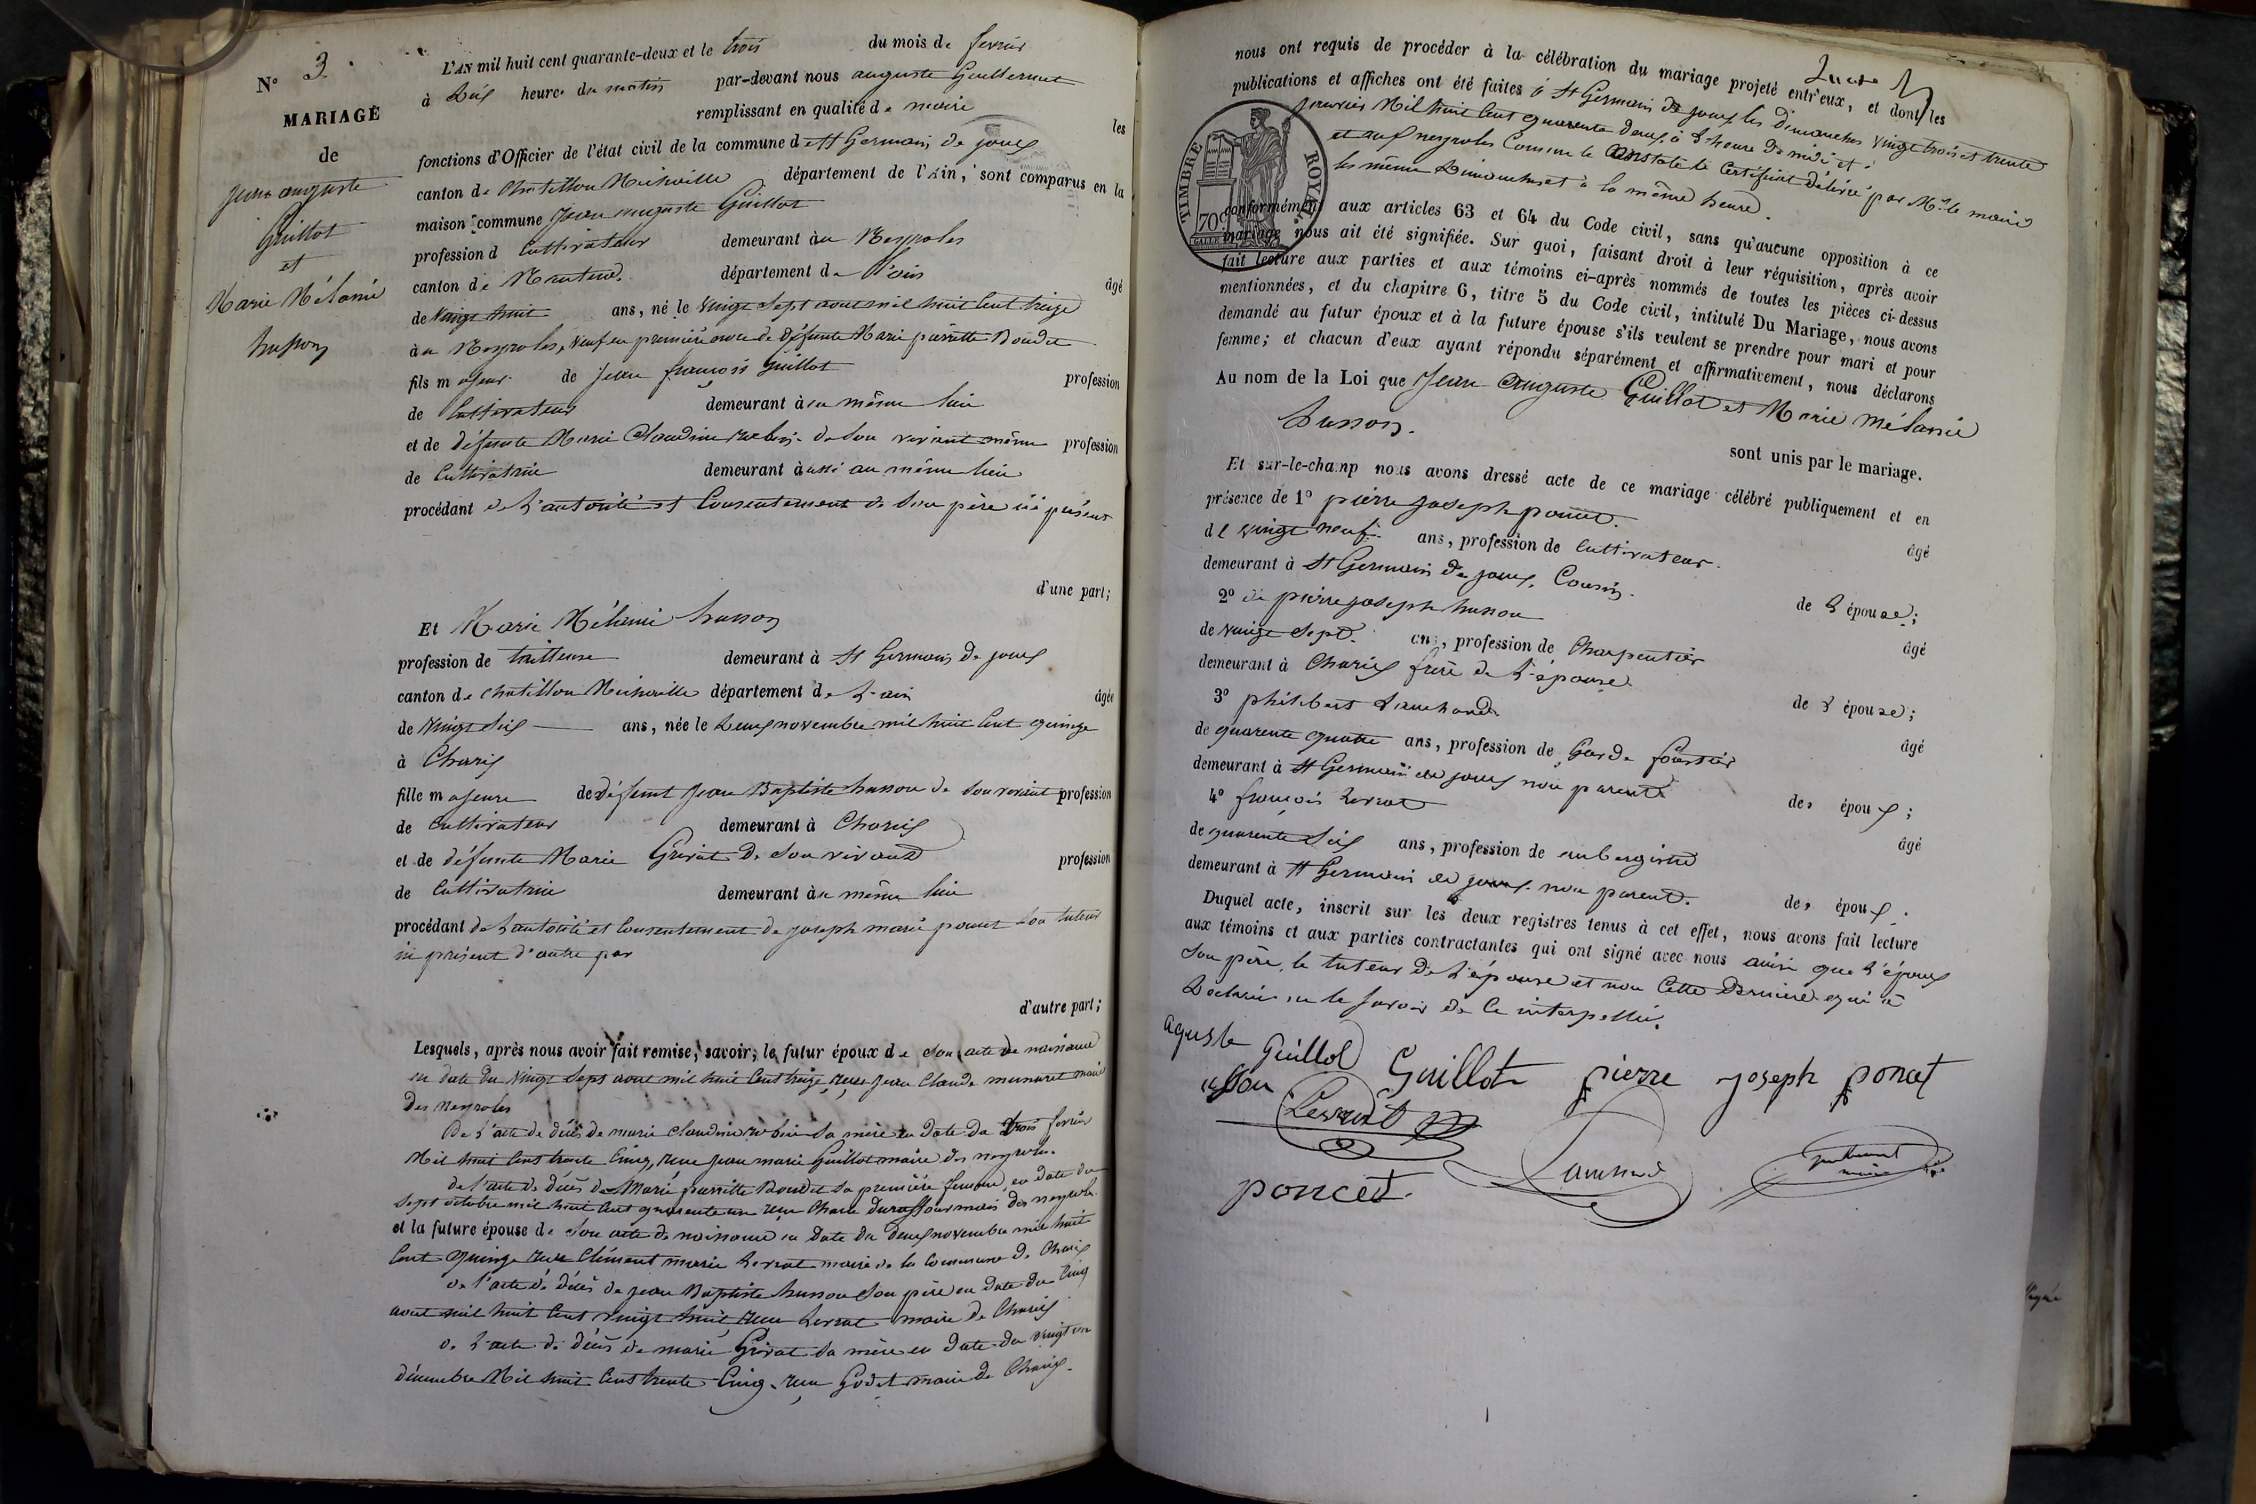 N° 3
MARIAGE
de
Jean auguste
Guillot
et
Marie Mélanie
husson
L'AN mil huit cent quarante-deux et le trois du mois de fevrier
à dix heures du matin par-devant nous auguste
remplissant en qualité de maire les
fonctions d'Officier de l'état civil de la commune de St Germain de joux
canton de Chatillon Michaille département de l'Ain, sont comparus en la
maison commune Jean auguste Guillot
profession d cultivateur demeurant au Neyroles
canton de Nantua département de l'ain âgé
de vingt huit ans, né le vingt sept aout mil huit cent treize
au Neyroles, veuf en première noce de défunte Marie pierrette Boudet
fils majeur de Jean françois Guillot profession
de cultivateur demeurant au même lieu
et de défunte Marie Claudine de son vivant même profession
de cultivatrice demeurant aussi au même lieu
procédant de l'autorité et consentement de son père ici présent
d'une part;
Et Marie Mélanie husson
profession de tailleuse demeurant à St Germain de joux
canton de chatillon Michaille département de l'ain âgée
de vingt six ans, née le deux novembre mil huit cent quinze
à Charix
fille majeure de défunt Jean Baptiste husson de son vivant profession
de cultivateur demeurant à Charix
et de défunte Marie Grivat de son vivant profession
de cultivatrice demeurant au même lieu
procédant de l'autorité et consentement de joseph marie poncet son tuteur
ici présent d'autre par
d'autre part;
Lesquels, après nous avoir fait remise, savoir; le futur époux de son acte de naissance
en date du vingt sept aout mil huit cent treize, reçu jean Claude maire
des neyroles
De l'acte de décès de marie claudine sa mère en date du trois fevrier
Mil huit cent trente cinq, reçu jean marie Guillot maire des neyroles.
de l'acte de décès de Marie pierrette Boudet sa première femme, en date du
sept octobre mil huit cent quarante un reçu maire des neyroles
et la future épouse de son acte de naissance en date du deux novembre mil huit
cent quinze reçu Clément marie Levrat maire de la commune de Charix
de l'acte de décès de jean Baptiste husson son père en date du cinq
aout mil huit cent vingt huit reçu Levrat maire de Charix
de l'acte de décès de marie Grivat sa mère en date du vingt un
décembre Mil huit cent trente cinq. reçu Godet maire de Charix.
nous ont requis de procéder à la célébration du mariage projeté entr'eux, et dont les
publications et affiches ont été faites à St Germain de joux les dimanches vingt trois et trente
janvier Mil huit cent quarante deux à l'heure de midi et
et aux neyroles Comme le Constate le Certificat délivré par Mr le maire
les même Dimanches et à la même heure.
TIMBRE ROYAL
70
conformément aux articles 63 et 64 du Code civil, sans qu'aucune opposition à ce
mariage nous ait été signifiée. Sur quoi, faisant droit à leur réquisition, après avoir
fait lecture aux parties et aux témoins ci-après nommés de toutes les pièces ci-dessus
mentionnées, et du chapitre 6, titre 5 du Code civil, intitulé Du Mariage, nous avons
demandé au futur époux et à la future épouse s'ils veulent se prendre pour mari et pour
femme; et chacun d'eux ayant répondu séparément et affirmativement, nous déclarons
Au nom de la Loi que Jean auguste Guillot et Marie Mélanie
husson.
sont unis par le mariage.
Et sur-le-champ nous avons dressé acte de ce mariage célébré publiquement et en
présence de 1° pierre joseph poncet. âgé
de vingt neuf ans, profession de cultivateur.
demeurant à St Germain de joux, Cousin. de l'épouse;
2° de pierre joseph husson âgé
de vingt sept ans, profession de Charpentier
demeurant à Charix frère de l'épouse. de l'épouse;
3° philibert âgé
de quarente quatre ans, profession de Garde forestier
demeurant à St Germain de joux non parent des époux;
4° françois Levrat âgé
de quarente six ans, profession de aubergiste
demeurant à St Germain de joux non parent. des époux.
Duquel acte, inscrit sur les deux registres tenus à cet effet, nous avons fait lecture
aux témoins et aux parties contractantes qui ont signé avec nous ainsi que l'époux
son père, le tuteur de l'épouse et non cette dernière qui a
déclaré ne le savoir de ce interpellée.
aguste Guillot Guillot pierre joseph poncet
Levrat
poncet